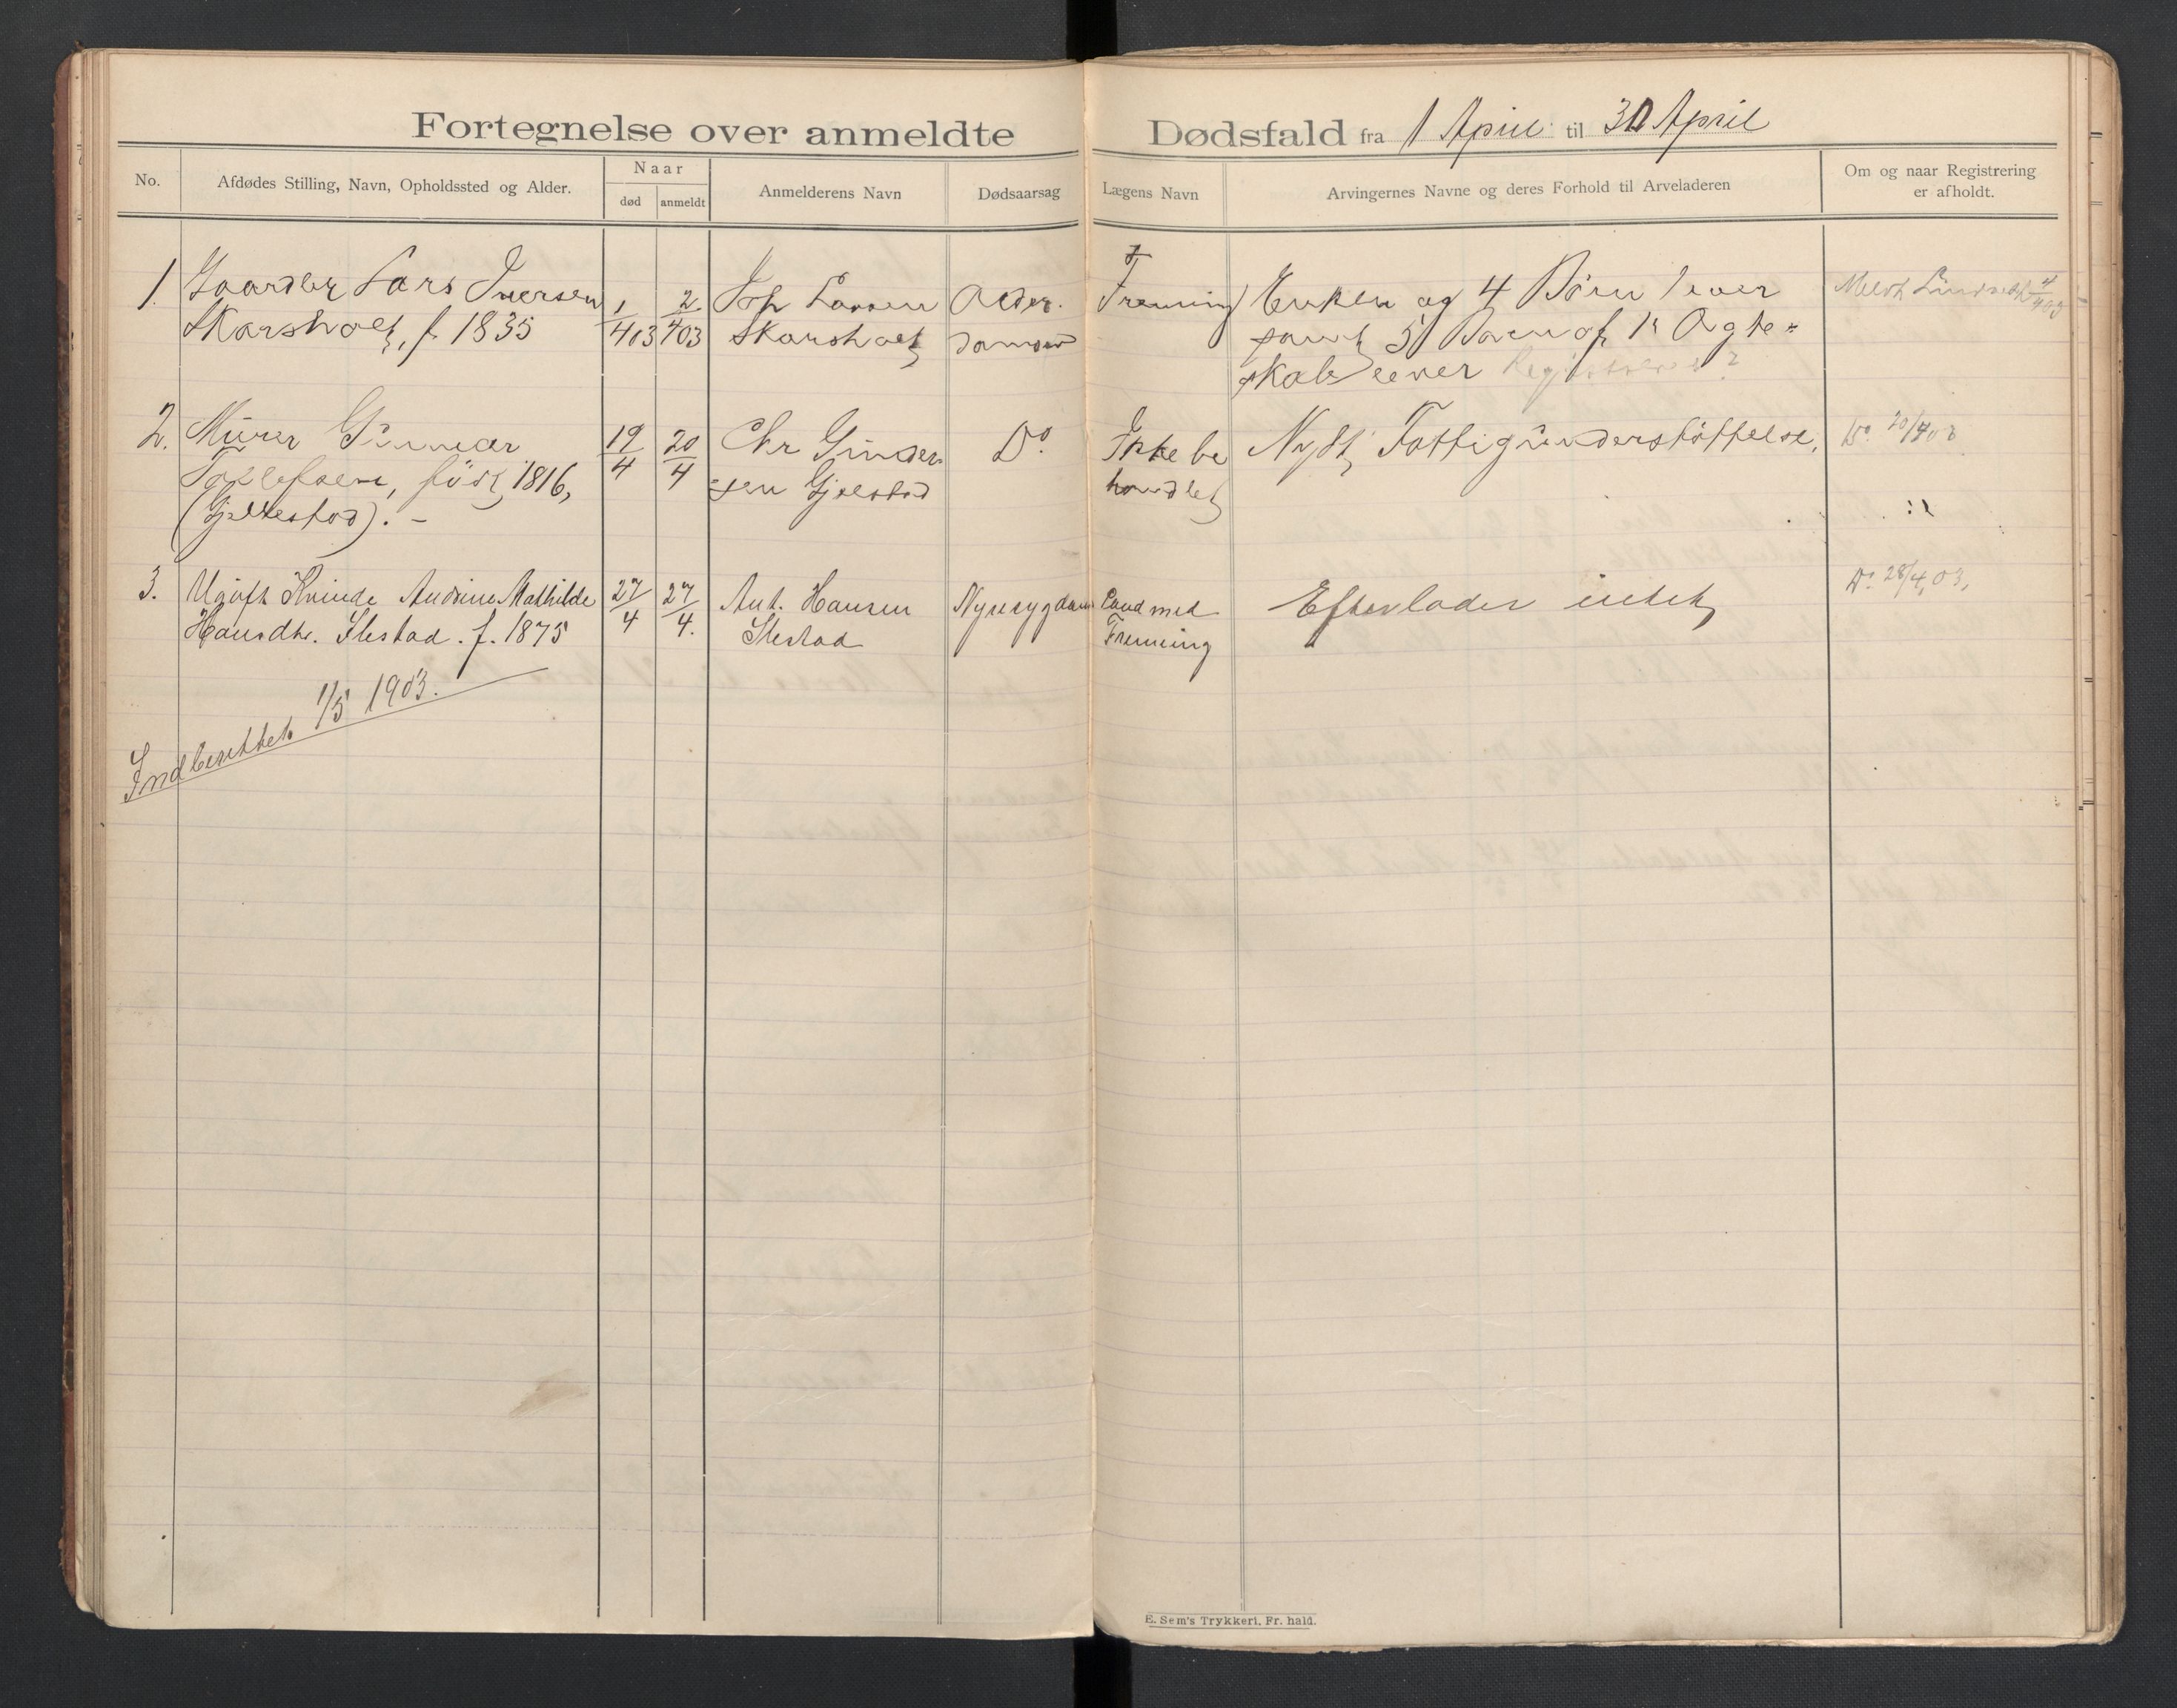 Fortegnelse over anmeldte Dødsfald fra 1 April til 30 April
No.
Afdødes Stilling, Navn, Opholdssted og Alder.
Naar
død
anmeldt
Anmelderens Navn
Dødsaarsag
Lægens Navn
Arvingernes Navne og deres Forhold til Arveladeren
Om og naar Registrering
er afholdt.
1. Gaardbr Lars Iversen
Skarsholt, f. 1835
1/4 03
2/4 03
Joh Larsen
Skarsholt
Alder-
domssv
Fremming
Enken og 4 Børn lever
samt 5 Børn af 1ste Ægte-
skab lever Registreres?
Meldt 4/4 03
2. Murer Gunner
født 1816,
(Gjellestad). -
19/4
20/4
Chr Gunder
sen Gjelstad
Do
Ikke be
handlet
Nydt Fattigunderstøttelse.
Do. 20/4 03
3. Ugift Kvinde Andrine Mathilde
Hansdtr. Ilestad. f. 1875
27/4
27/4.
Ant. Hansen
Ilestad
Nyresygdom
Cand med
Fremming
Efterlader intet
Do. 28/4.03.
Indberettet 1/5 1903.
E. Sem's Trykkeri, Fr. hald.